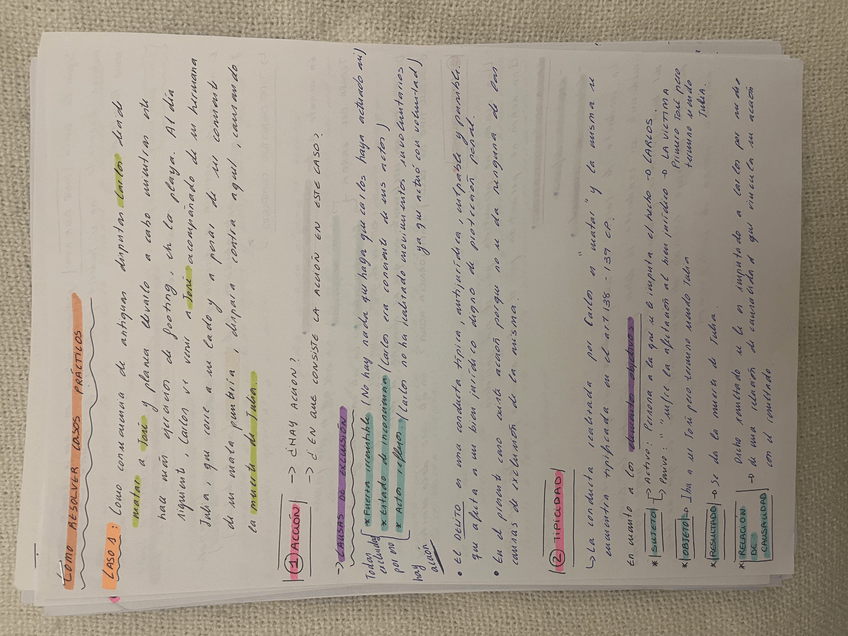 CÓMO RESOLVER CASOS PRÁCTICOS
CASO 1: Como consecuencia de antiguas disputas Carlos decide
matar a José y planea llevarlo a cabo mientras este
hace sus ejercicios de footing, en la playa. Al día
siguiente, Carlos ve venir a José acompañado de su hermana
Julia, que corre a su lado y a pesar de ser consciente
de su mala puntería, dispara contra aquel, causando
la muerte de Julia.
1) ACCIÓN -> ¿HAY ACCIÓN?
-> ¿EN QUE CONSISTE LA ACCIÓN EN ESTE CASO?
-> CAUSAS DE EXCLUSIÓN
Todas excluidas por eso hay acción
* Fuerza irresistible (No hay nada que haga que Carlos haya actuado así)
* Estado de inconsciencia (Carlos era consciente de sus actos)
* Actos reflejos (Carlos no ha realizado movimientos involuntarios
ya que actuó con voluntad)
• El DELITO es una conducta típica, antijurídica, culpable y punible
que afecta a un bien jurídico digno de protección penal.
• En el presente caso existe acción porque no se da ninguna de las
causas de exclusión de la misma.
2) TIPICIDAD
↳ La conducta realizada por Carlos es "matar" y la misma se
encuentra tipificada en el art 138 - 139 CP.
En cuanto a los elementos objetivos:
* SUJETO Activo: Persona a la que se le imputa el hecho -> CARLOS
Pasivo: " " sufre la afectación al bien jurídico -> LA VÍCTIMA
Primero José pero
termino siendo
Julia.
* OBJETO -> Iba a ser José pero termino siendo Julia
* RESULTADO -> Se da la muerte de Julia.
* RELACIÓN DE CAUSALIDAD -> Dicho resultado se le es imputado a Carlos por medio
de una relación de causalidad que vincula su acción
con el resultado